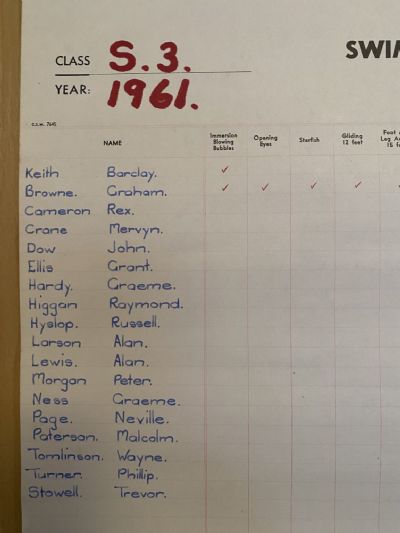 CLASS S.3. SWIM
YEAR: 1961.
C.S.W. 7645
NAME Immersion Blowing Bubbles Opening Eyes Starfish Gliding 12 feet
Keith Barclay. ✓
Browne. Graham. ✓ ✓ ✓ ✓
Cameron Rex.
Crane Mervyn.
Dow John.
Ellis Grant.
Hardy. Graeme.
Higgan Raymond.
Hyslop. Russell.
Larson Alan.
Lewis. Alan.
Morgan Peter.
Ness Graeme.
Page. Neville.
Paterson. Malcolm.
Tomlinson. Wayne.
Turner. Phillip.
Stowell. Trevor.